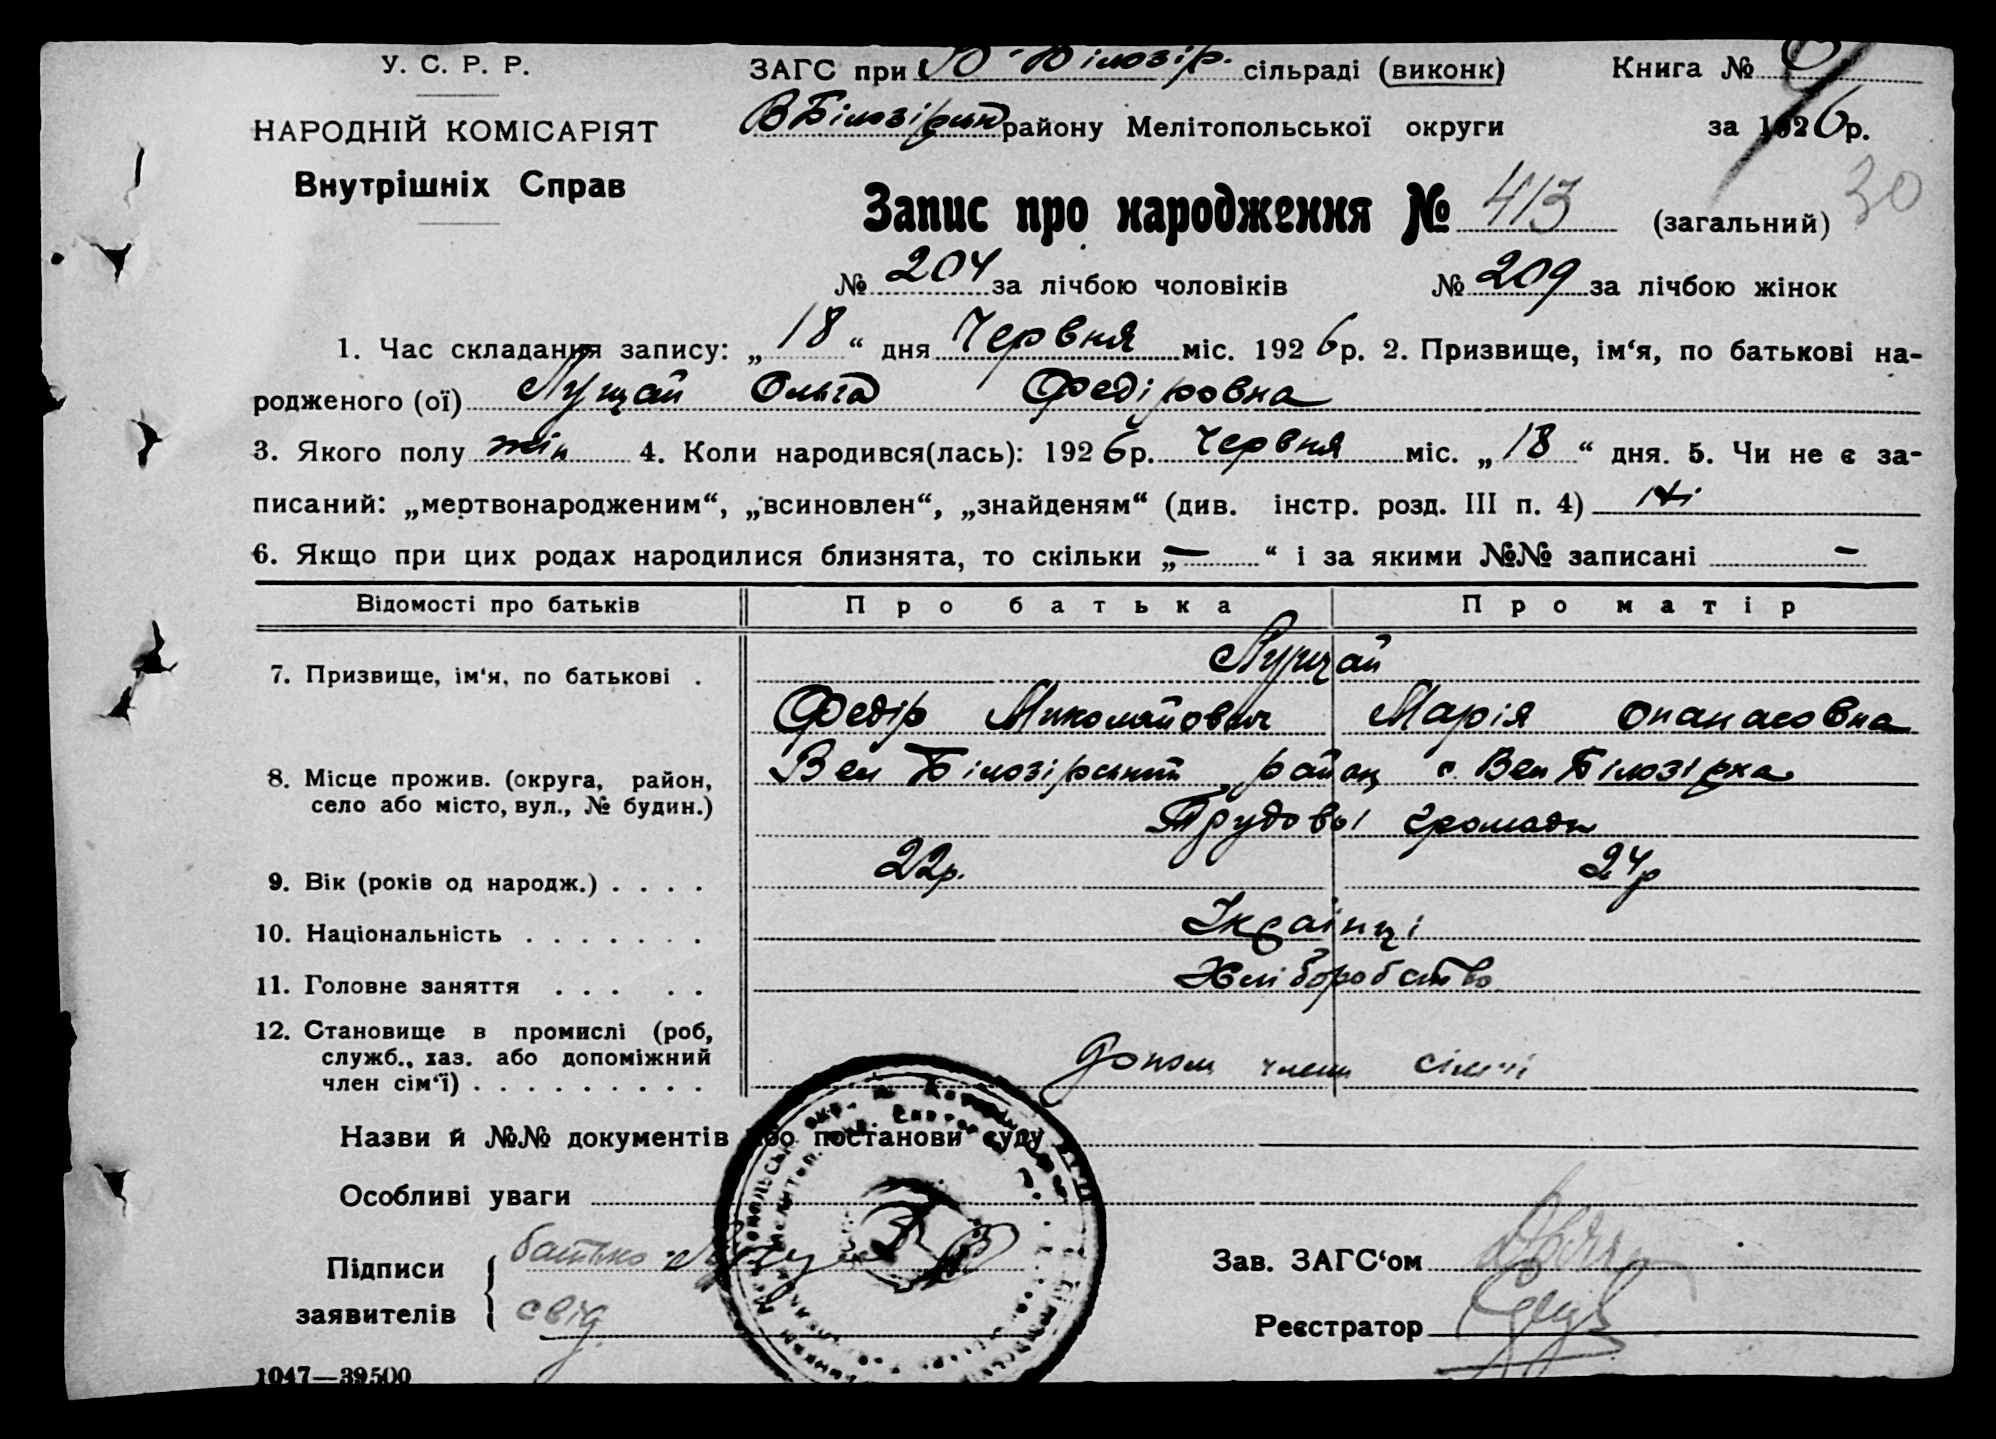 У. С. Р. Р.
НАРОДНІЙ КОМІСАРІЯТ
Внутрішніх Справ
ЗАГС при В-Білозір. сільраді (виконк) Книга №
ВБілозірськ району Мелітопольської округи за 1926р.
30
Запис про народження № 413 (загальний)
№ 204 за лічбою чоловіків № 209 за лічбою жінок
1. Час складання запису: „18“ дня Червня міс. 1926р. 2. Призвище, ім‘я, по батькові на-
родженого (ої) Лущай Ольга Федіровна
3. Якого полу жін 4. Коли народився(лась): 1926р. Червня міс. „18“ дня. 5. Чи не є за-
писаний: „мертвонародженим“, „всиновлен“, „знайденям“ (див. інстр. розд. III п. 4) Ні
6. Якщо при цих родах народилися близнята, то скільки „—“ і за якими №№ записані —
Відомості про батьків Про батька Про матір
Лущай
7. Призвище, ім‘я, по батькові .
Федір Миколайович Марія Опанасовна
8. Місце прожив. (округа, район, Вел Білозірський район с. Вел Білозірка
село або місто, вул., № будин.) Трудової громади
9. Вік (років од народж.) . . . . 22р. 24р
10. Національність . . . . . . . Українці
11. Головне заняття . . . . . Хліборобство
12. Становище в промислі (роб,
служб., хаз. або допоміжний допом член сімʼї
член сім‘ї) . . . . . . . . .
Назви й №№ документів або постанови суду
Особливі уваги
Підписи батько
заявителів свід
Зав. ЗАГС‘ом
Реєстратор
1047—39500